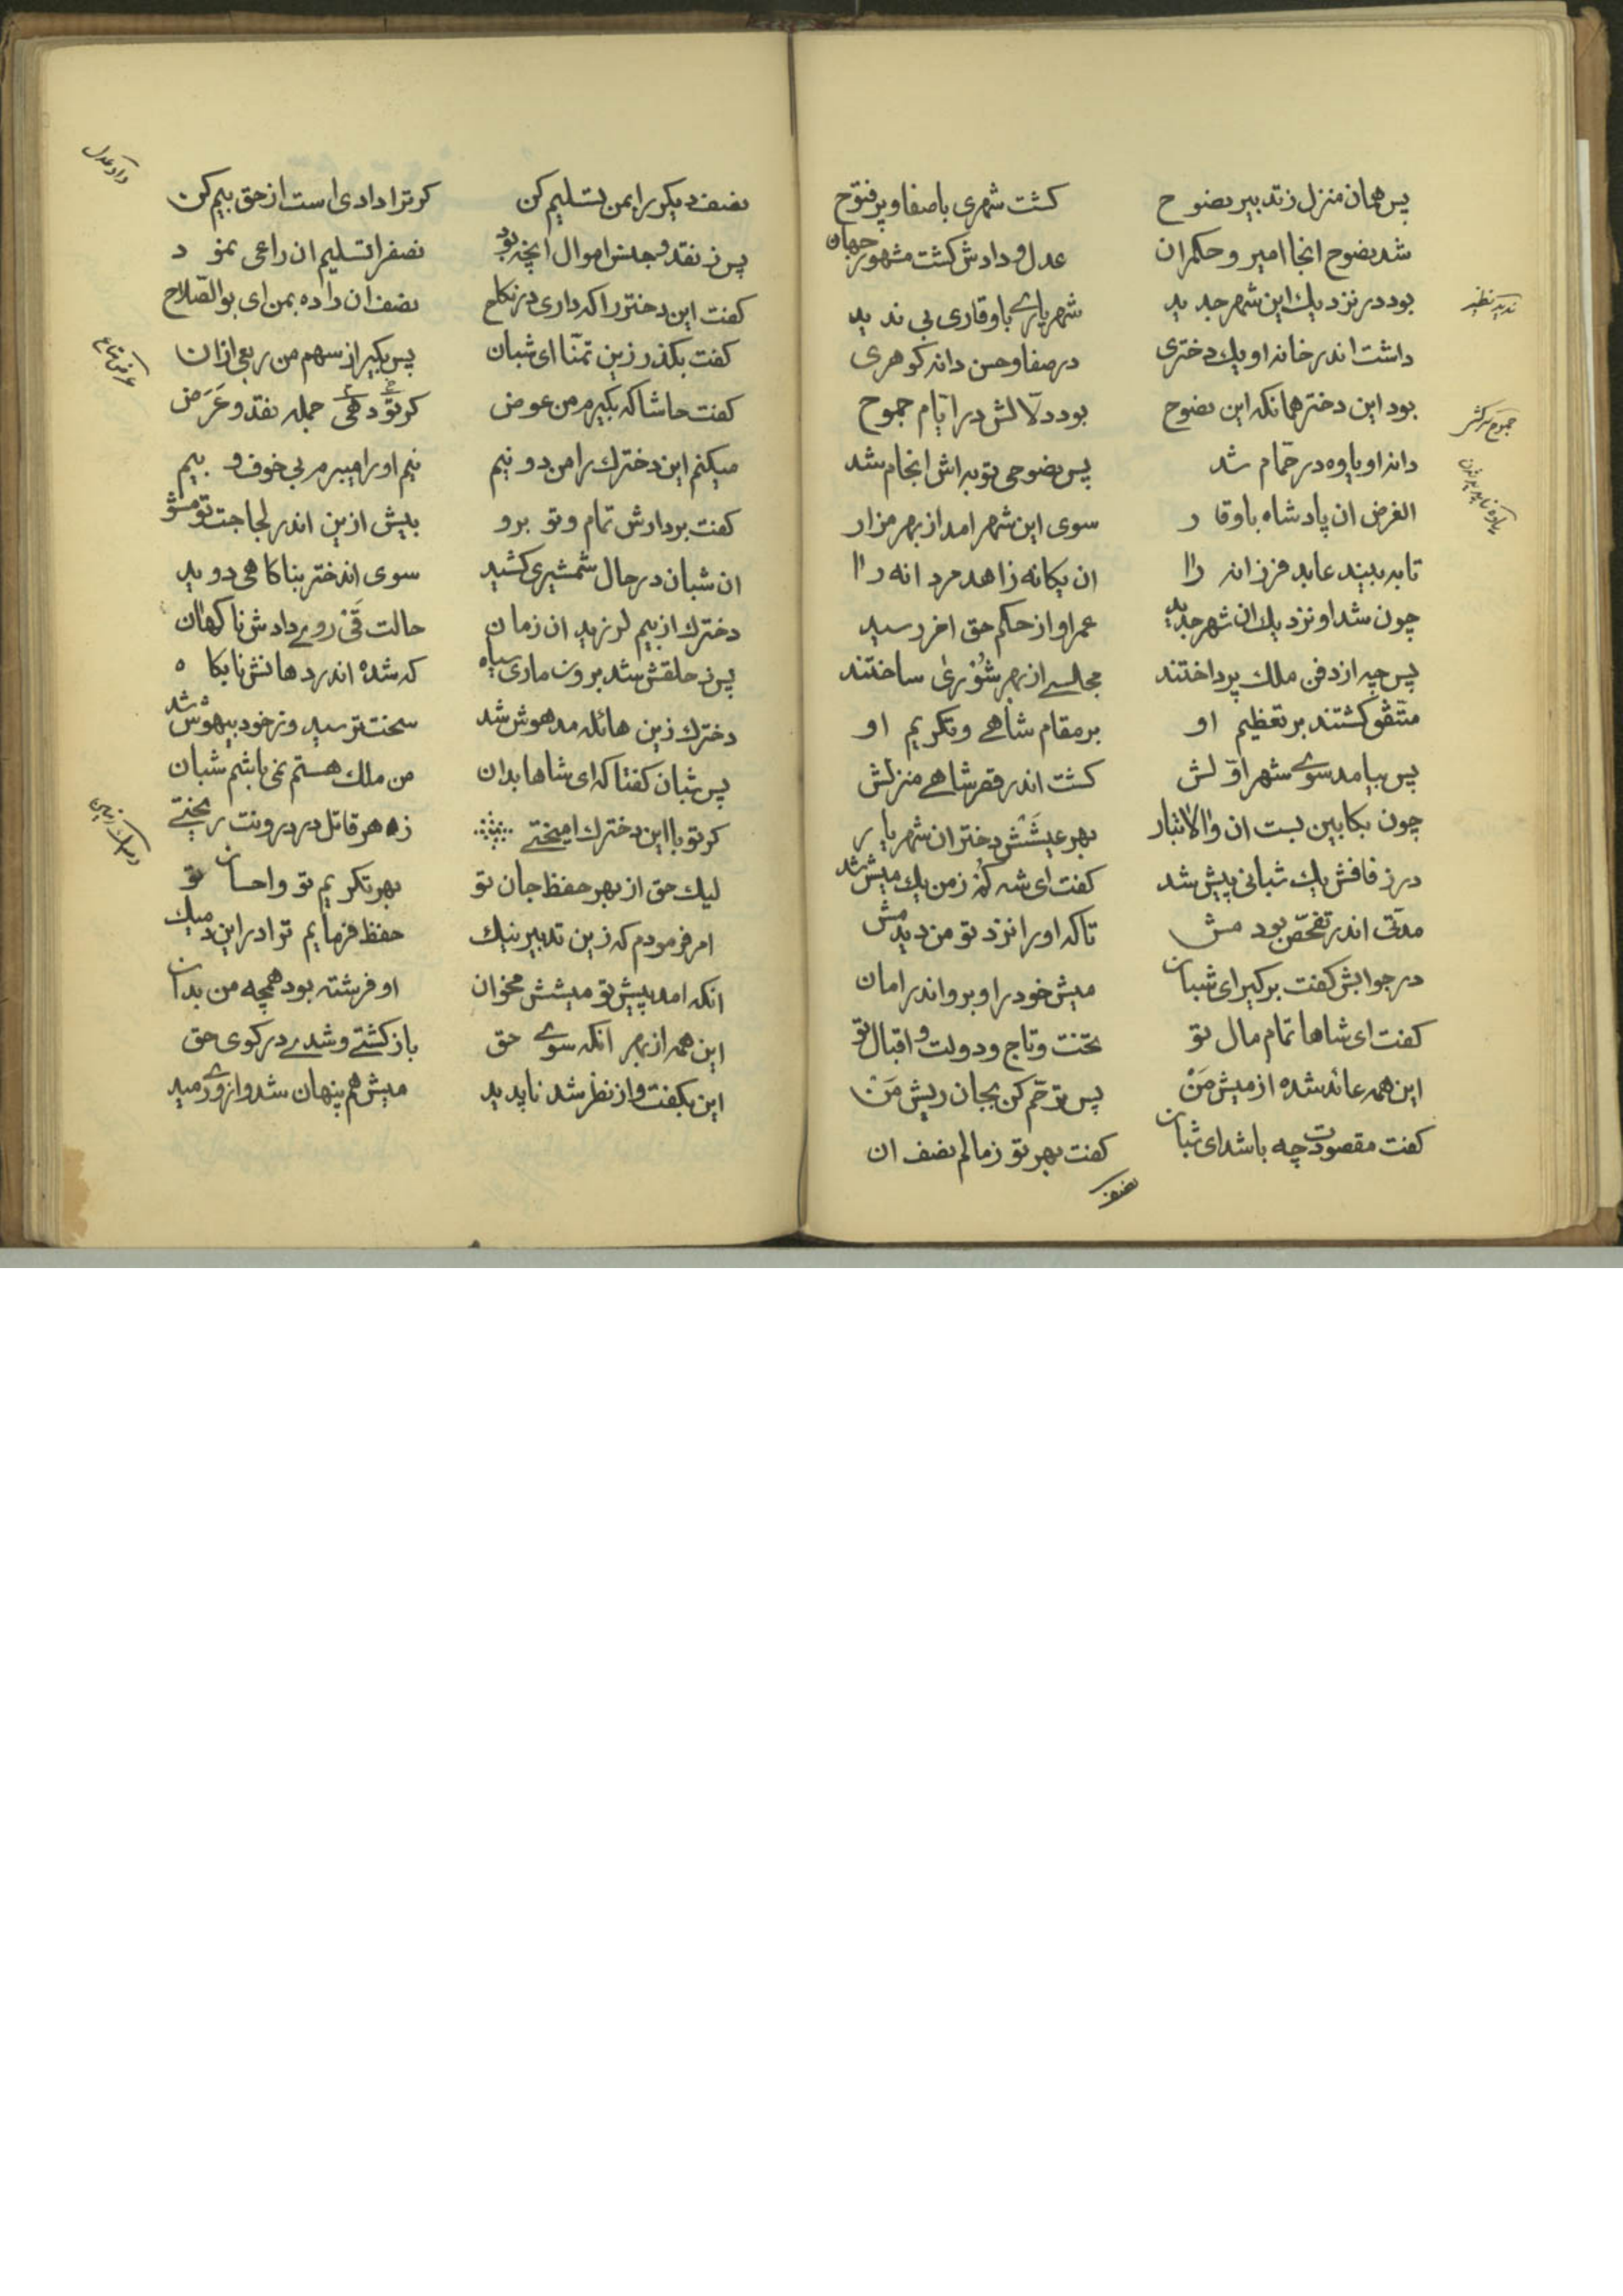 پس همان منزل ز تدبیر نصوح کشت شهری باصفا و پر فتوح
شد نصوح انجا امیر و حکمران عدل و دادش کشت مشهور جهان
بود در نزدیك این شهر جدید شهریارے باوقاری بی ندید
ندید نظیر
داشت اندر خانه او یك دختری در صفا و حسن دانه کوهری
بود این دختر همانکه این نصوح بود دلالش در ایام جموح
جموح سرکش
دانه او یاوه در حمام شد پس نصوحی توبه اش انجام شد
الغرض ان پادشاه باوقار سوی این شهر امد از بهر مزار
تا به بیند عابد فرزانه را ان یکانه زاهد مردانه را
چون شد او نزدیك ان شهر جدید عمر او از حکم حق اخر رسید
پس چه از دفن ملك پرداختند مجلسے از بهر شوری ساختند
متفق کشتند بر تعظیم او بر مقام شاهے و تکریم او
پس بیامد سوے شهر اولش کشت اندر قصر شاهے منزلش
چون بکابین بست ان والاتبار بهر عیشش دختر ان شهریار
در زفافش یك شبانی پیش شد کفت ای شه کم ز من یك میش شد
مدتی اندر تفحص بودمش تاکه او را نزد تو من دیدمش
در جوابش کفت برکیر ای شبان میش خود را و برو اندر امان
کفت ای شاها تمام مال تو تخت و تاج و دولت و اقبال تو
این همه عائد شده از میش من پس ترحم کن بجان ریش من
کفت مقصودت چه باشد ای شبان کفت بهر تو ز مالم نصف ان
نصف
نصف دیکر را بمن تسلیم کن کر ترا دادی است از حق بیم کن
داد عدل
پس ز نقد و جنس اموال انچه بود نصف را تسلیم ان راعی نمود
کفت این دختر را که داری در نکاح نصف ان داده بمن ای بوالصلاح
کفت بکذر زین تمنا ای شبان پس بکیر از سهم من ربعی از ان
کفت حاشا که بکیرم من عوض کر تو دهی جمله نقد و عرض
عرض متاع
میکنم این دخترك را من دو نیم نیم او را میبرم بی خوف و بیم
کفت بردارش تمام و تو برو بیش ازین اندر لجاجت تو مشو
ان شبان در حال شمشیری کشید سوی اندختر بناکاهی دوید
دخترك از بیم لرزید ان زمان حالت قی روے دادش ناکهان
پس ز حلقش شد برون ماری سیاه که شده اندر دهانش نابکاه
دخترك زین هائله مدهوش شد سخت ترسید و ز خود بیهوش شد
پس شبان کفتا که ای شاها بدان من ملك هستم نمی باشم شبان
کر تو با این دخترك امیختے زهر قاتل در درونت ریختے
لیك حق از بهر حفظ جان تو بهر تکریم تو و احسان تو
امر فرمودم که زین تدبیر نیك حفظ فرمایم ترا در این دمیك
انکه امد پیش تو میشش مخوان او فرشته بود همچه من بدان
این همه از بهر انکه سوے حق باز کشتے و شدے در کوی حق
این بکفت و از نظر شد ناپدید میش هم پنهان شد و از وے رمید